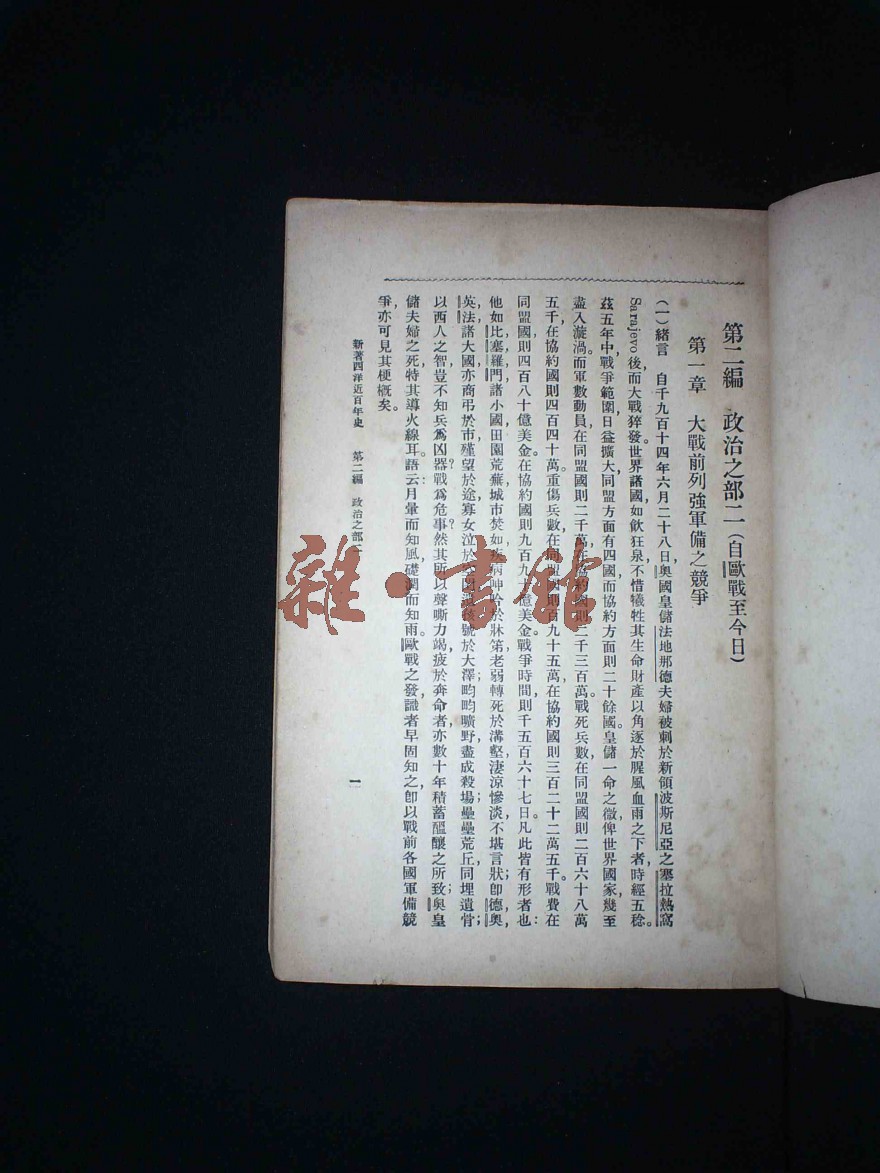 第二編　政治之部二（自歐戰至今日）
第一章　大戰前列強軍備之競爭
（一）緒言　自千九百十四年六月二十八日，奧國皇儲法地那德夫婦被刺於新領波斯尼亞之塞拉熱窩
Sarajevo後而大戰猝發。世界諸國，如飲狂泉，不惜犧牲其生命財產以角逐於腥風血雨之下者，時經五稔。
茲五年中，戰爭範圍，日益擴大，同盟方面有四國，而協約方面則二十餘國。皇儲一命之微，俾世界國家幾至
盡入漩渦。而軍數動員，在同盟國則二千萬，協約國則二千三百萬。戰死兵數，在同盟國則二百六十八萬
五千，在協約國則四百四十萬。重傷兵數，在同盟國則百九十五萬，在協約國則三百二十二萬五千。戰費在
同盟國則四百八十億美金。在協約國則九百九十億美金。戰爭時間，則千五百六十七日。凡此皆有形者也：
他如比塞羅門諸小國，田園荒蕪，城市焚如，疾病呻吟於牀笫，老弱轉死於溝壑，淒涼慘淡，不堪言狀；卽德奧，
英法諸大國，亦商弔於市，殣望於途，寡女泣於空閨，孤孩號於大澤；畇畇曠野，盡成殺場；壘壘荒丘，同埋遺骨；
以西人之智，豈不知兵爲凶器？戰爲危事？然其所以聲嘶力竭，疲於奔命者，亦數十年積蓄醞釀之所致；奧皇
儲夫婦之死，特其導火線耳。語云：月暈而知風，礎潤而知雨。歐戰之發，識者早固知之，卽以戰前各國軍備競
爭，亦可見其梗概矣。
新著西洋近百年史　第二編　政治之部二
一
雜·書館